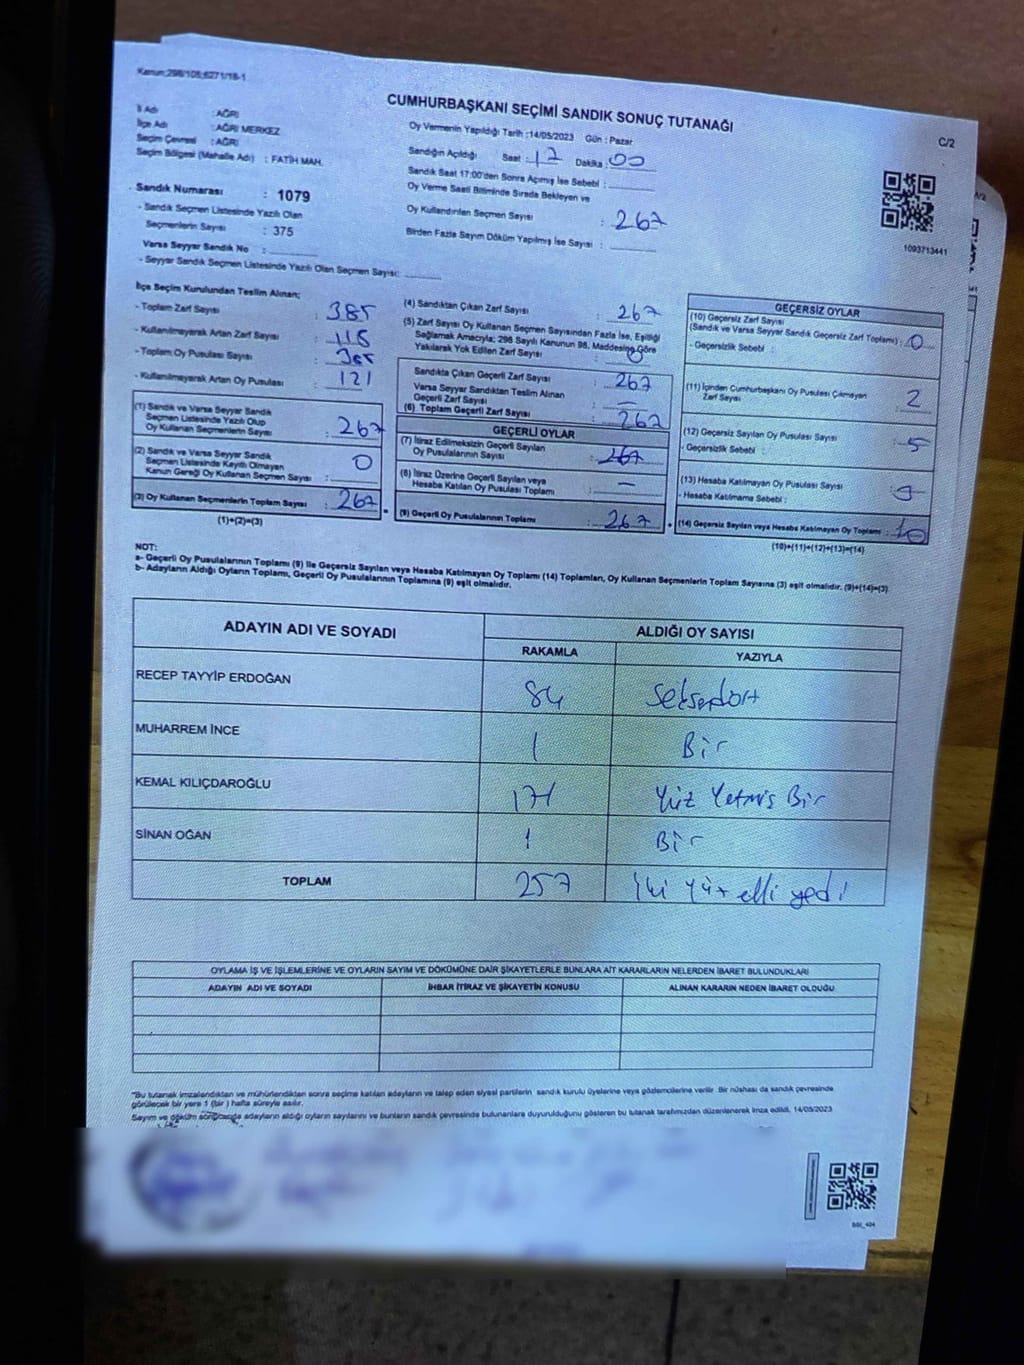 Kanun:298/105;6271/18-1
CUMHURBAŞKANI SEÇİMİ SANDIK SONUÇ TUTANAĞI
C/2
İl Adı : AĞRI
İlçe Adı : AĞRI MERKEZ
Seçim Çevresi : AĞRI
Seçim Bölgesi (Mahalle Adı) : FATİH MAH.
Sandık Numarası : 1079
- Sandık Seçmen Listesinde Yazılı Olan
Seçmenlerin Sayısı : 375
Varsa Seyyar Sandık No :
- Seyyar Sandık Seçmen Listesinde Yazılı Olan Seçmen Sayısı:
Oy Vermenin Yapıldığı Tarih :14/05/2023 Gün : Pazar
Sandığın Açıldığı Saat : 17 Dakika : 00
Sandık Saat 17:00'den Sonra Açılmış İse Sebebi :
Oy Verme Saati Bitiminde Sırada Bekleyen ve
Oy Kullandırılan Seçmen Sayısı : 267
Birden Fazla Sayım Döküm Yapılmış İse Sayısı :
1093713441
İlçe Seçim Kurulundan Teslim Alınan;
- Toplam Zarf Sayısı : 385
- Kullanılmayarak Artan Zarf Sayısı : 118
- Toplam Oy Pusulası Sayısı : 385
- Kullanılmayarak Artan Oy Pusulası : 121
(1) Sandık ve Varsa Seyyar Sandık
Seçmen Listesinde Yazılı Olup
Oy Kullanan Seçmenlerin Sayısı : 267
(2) Sandık ve Varsa Seyyar Sandık
Seçmen Listesinde Kayıtlı Olmayan
Kanun Gereği Oy Kullanan Seçmen Sayısı : 0
(3) Oy Kullanan Seçmenlerin Toplam Sayısı : 267
(1)+(2)=(3)
(4) Sandıktan Çıkan Zarf Sayısı : 267
(5) Zarf Sayısı Oy Kullanan Seçmen Sayısından Fazla İse, Eşitliği
Sağlamak Amacıyla; 298 Sayılı Kanunun 98. Maddesine Göre
Yakılarak Yok Edilen Zarf Sayısı : 0
Sandıkta Çıkan Geçerli Zarf Sayısı : 267
Varsa Seyyar Sandıktan Teslim Alınan
Geçerli Zarf Sayısı : —
(6) Toplam Geçerli Zarf Sayısı : 267
GEÇERLİ OYLAR
(7) İtiraz Edilmeksizin Geçerli Sayılan
Oy Pusulalarının Sayısı : 267
(8) İtiraz Üzerine Geçerli Sayılan veya
Hesaba Katılan Oy Pusulası Toplamı : —
(9) Geçerli Oy Pusulalarının Toplamı : 267
GEÇERSİZ OYLAR
(10) Geçersiz Zarf Sayısı
(Sandık ve Varsa Seyyar Sandık Geçersiz Zarf Toplamı) : 0
- Geçersizlik Sebebi :
(11) İçinden Cumhurbaşkanı Oy Pusulası Çıkmayan
Zarf Sayısı : 2
(12) Geçersiz Sayılan Oy Pusulası Sayısı : 5
- Geçersizlik Sebebi :
(13) Hesaba Katılmayan Oy Pusulası Sayısı :
- Hesaba Katılmama Sebebi :
(14) Geçersiz Sayılan veya Hesaba Katılmayan Oy Toplamı : 10
(10)+(11)+(12)+(13)=(14)
NOT:
a- Geçerli Oy Pusulalarının Toplamı (9) ile Geçersiz Sayılan veya Hesaba Katılmayan Oy Toplamı (14) Toplamları, Oy Kullanan Seçmenlerin Toplam Sayısına (3) eşit olmalıdır. (9)+(14)=(3)
b- Adayların Aldığı Oyların Toplamı, Geçerli Oy Pusulalarının Toplamına (9) eşit olmalıdır.
ADAYIN ADI VE SOYADI ALDIĞI OY SAYISI
RAKAMLA YAZIYLA
RECEP TAYYİP ERDOĞAN 84 seksendört
MUHARREM İNCE 1 Bir
KEMAL KILIÇDAROĞLU 171 Yüz Yetmiş Bir
SİNAN OĞAN 1 Bir
TOPLAM 257 İki Yüz elli yedi
OYLAMA İŞ VE İŞLEMLERİNE VE OYLARIN SAYIM VE DÖKÜMÜNE DAİR ŞİKAYETLERLE BUNLARA AİT KARARLARIN NELERDEN İBARET BULUNDUKLARI
ADAYIN ADI VE SOYADI İHBAR İTİRAZ VE ŞİKAYETİN KONUSU ALINAN KARARIN NEDEN İBARET OLDUĞU
"Bu tutanak imzalandıktan ve mühürlendikten sonra seçime katılan adayların ve talep eden siyasi partilerin sandık kurulu üyelerine veya gözlemcilerine verilir. Bir nüshası da sandık çevresinde
görülecek bir yere 1 (bir ) hafta süreyle asılır.
Sayım ve döküm sonucunda adayların aldığı oyların sayılarını ve bunların sandık çevresinde bulunanlara duyurulduğunu gösteren bu tutanak tarafımızdan düzenlenerek imza edildi. 14/05/2023